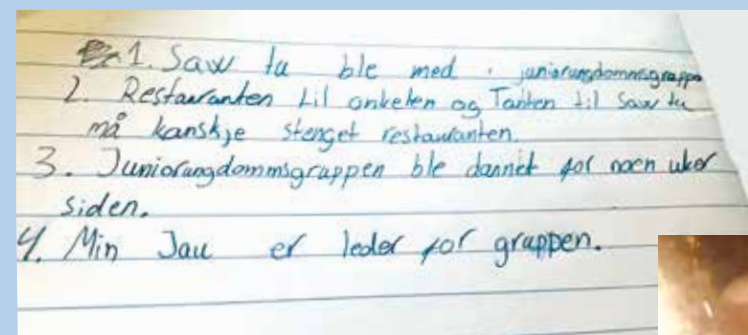 1. Saw tu ble med i juniorungdommsgruppe
2. Restauranten til onkelen og Tanten til Saw tu
må kanskje stenget restauranten.
3. Juniorungdommsgruppen ble dannet for noen uker
siden.
4. Min Jau er leder for gruppen.